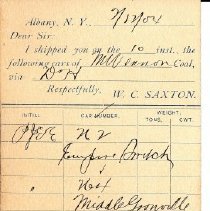 Albany, N. Y., 7/12/04
Dear Sir:
I shipped you on the 10 inst., the
following cars of Coal,
via D&H
Respectfully, W. C. SAXTON.
INITIAL CAR NUMBER. WEIGHT:
TONS, CWT.
N 2
Empire Brick
"
Middle Granville